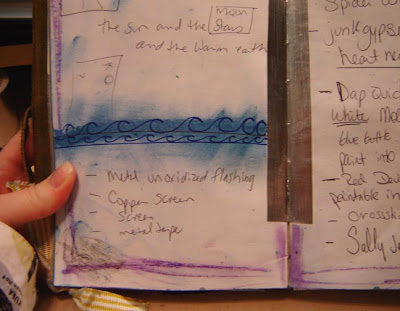 the sun and the Moon
Stars
and the warm earth
- Metal unoxidized flashing
- Copper screen
- Screen
- metal tape
Spider
- junkgypse
heart ne
- Dap Quic
White Mol
blue
paint into
- Red Dev
paintable in
- Crossst
- Sally